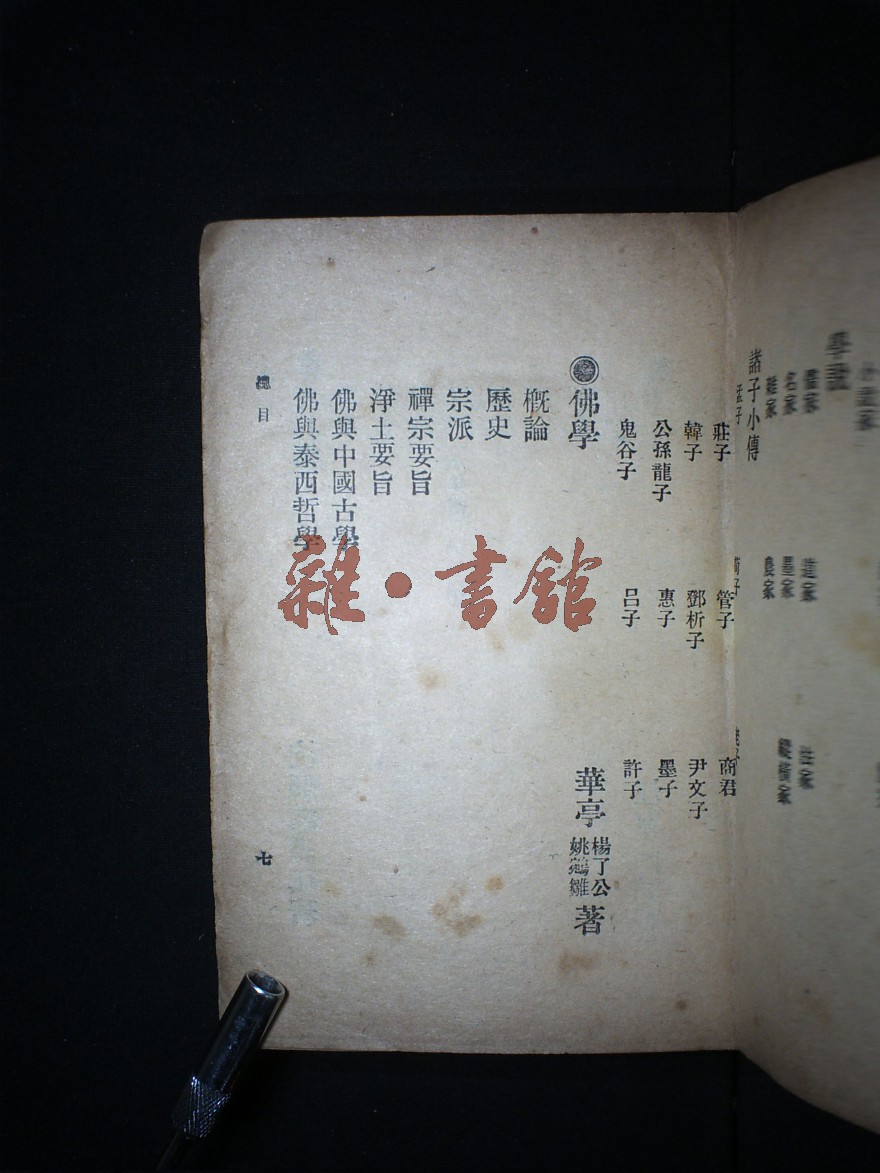 學說
儒家　道家　法家
名家　墨家　縱橫家
雜家　農家
諸子小傳
孟子　荀子
莊子　管子　商君
韓子　鄧析子　尹文子
公孫龍子　惠子　墨子
鬼谷子　呂子　許子
佛學　華亭　楊了公　姚鵷雛　著
概論
歷史
宗派
禪宗要旨
淨土要旨
佛與中國古學
佛與泰西哲學
總目　七
雜・書館